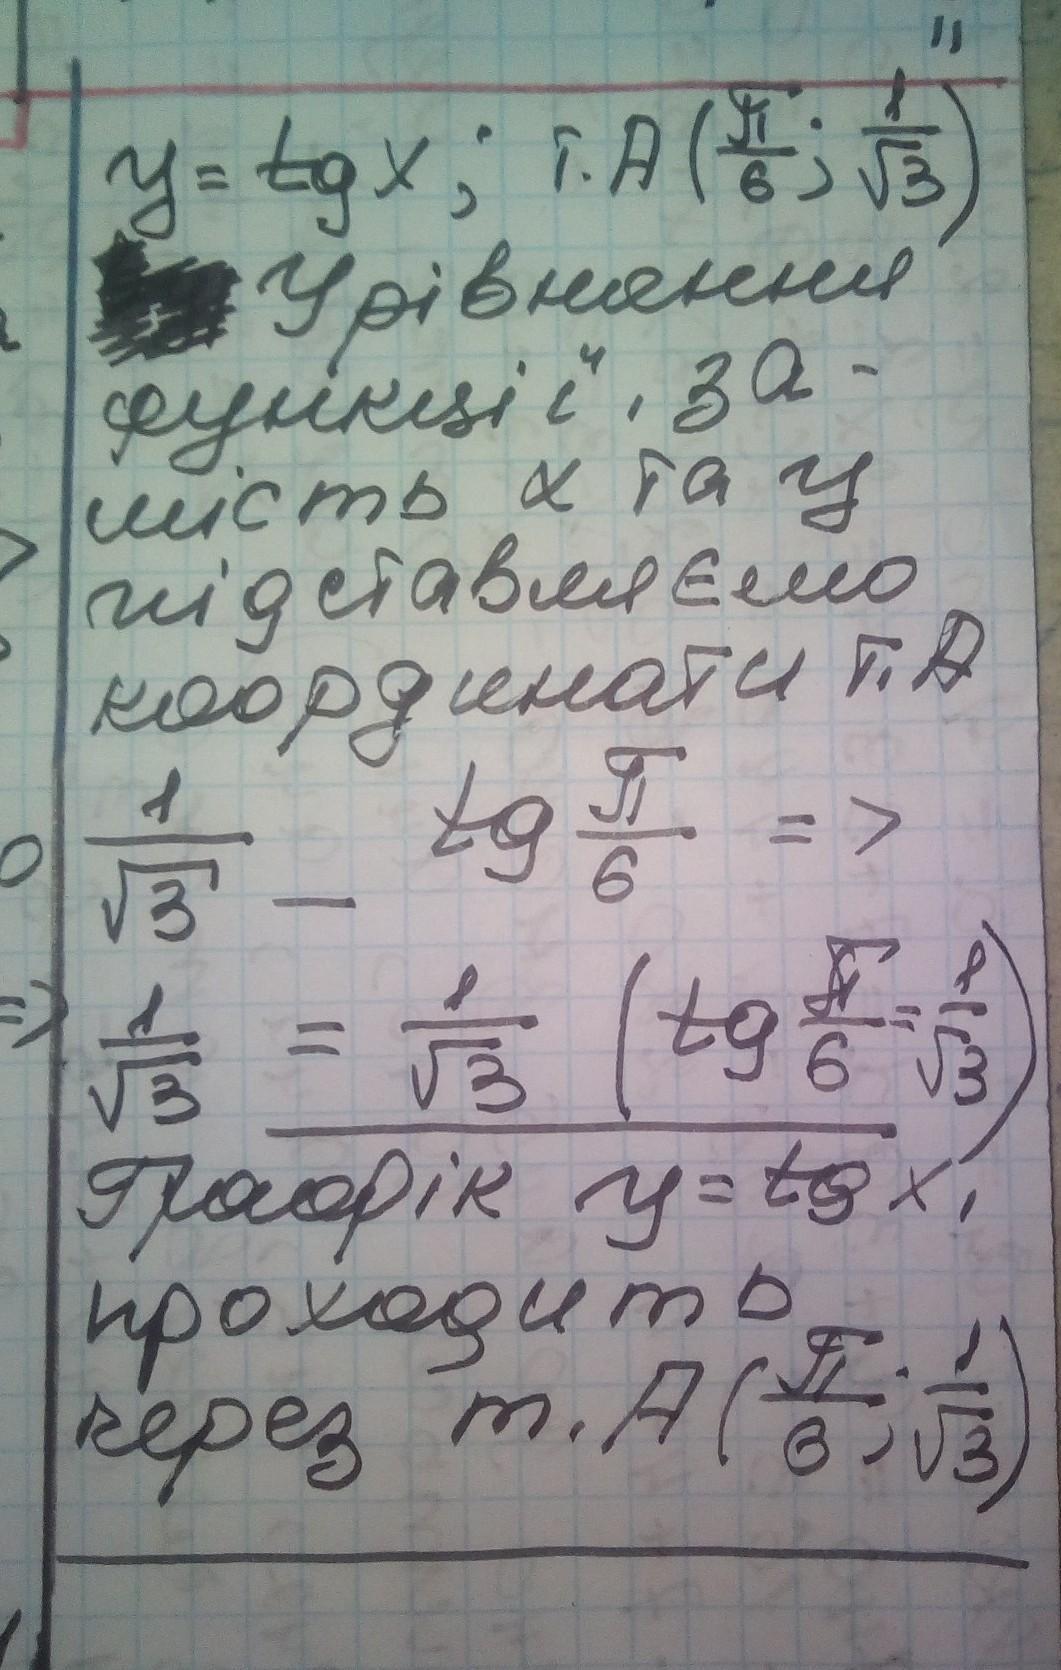 "
y = tg x ; т. A (π/6 ; 1/√3)
У рівняння
функції, за-
мість x та y
підставляємо
координати т. A
1/√3 _ tg π/6 =>
=> 1/√3 = 1/√3 (tg π/6 = 1/√3)
Графік y = tg x,
проходить
через т. A (π/6 ; 1/√3)